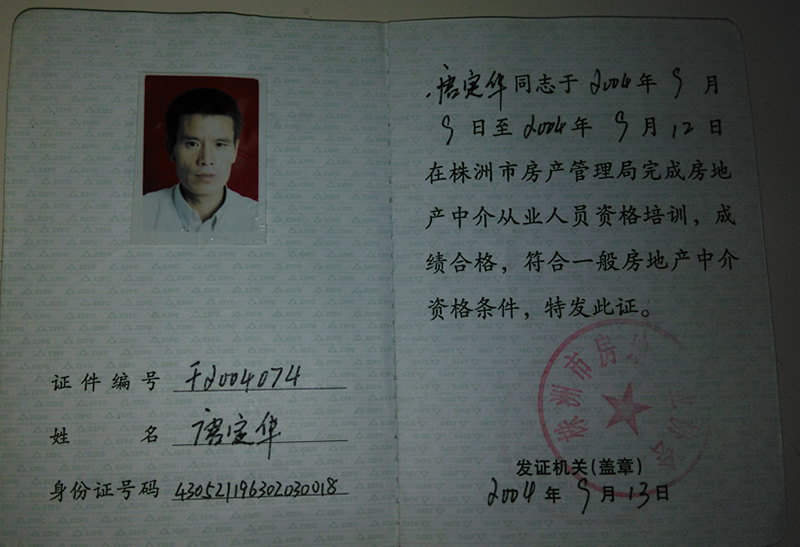 证件编号 于2004074
姓名 唐定华
身份证号码 430521196302030018
唐定华同志于2004年9月
9日至2004年9月12日
在株洲市房产管理局完成房地
产中介从业人员资格培训,成
绩合格,符合一般房地产中介
资格条件,特发此证。
株洲市房
发证机关(盖章)
2004年9月13日